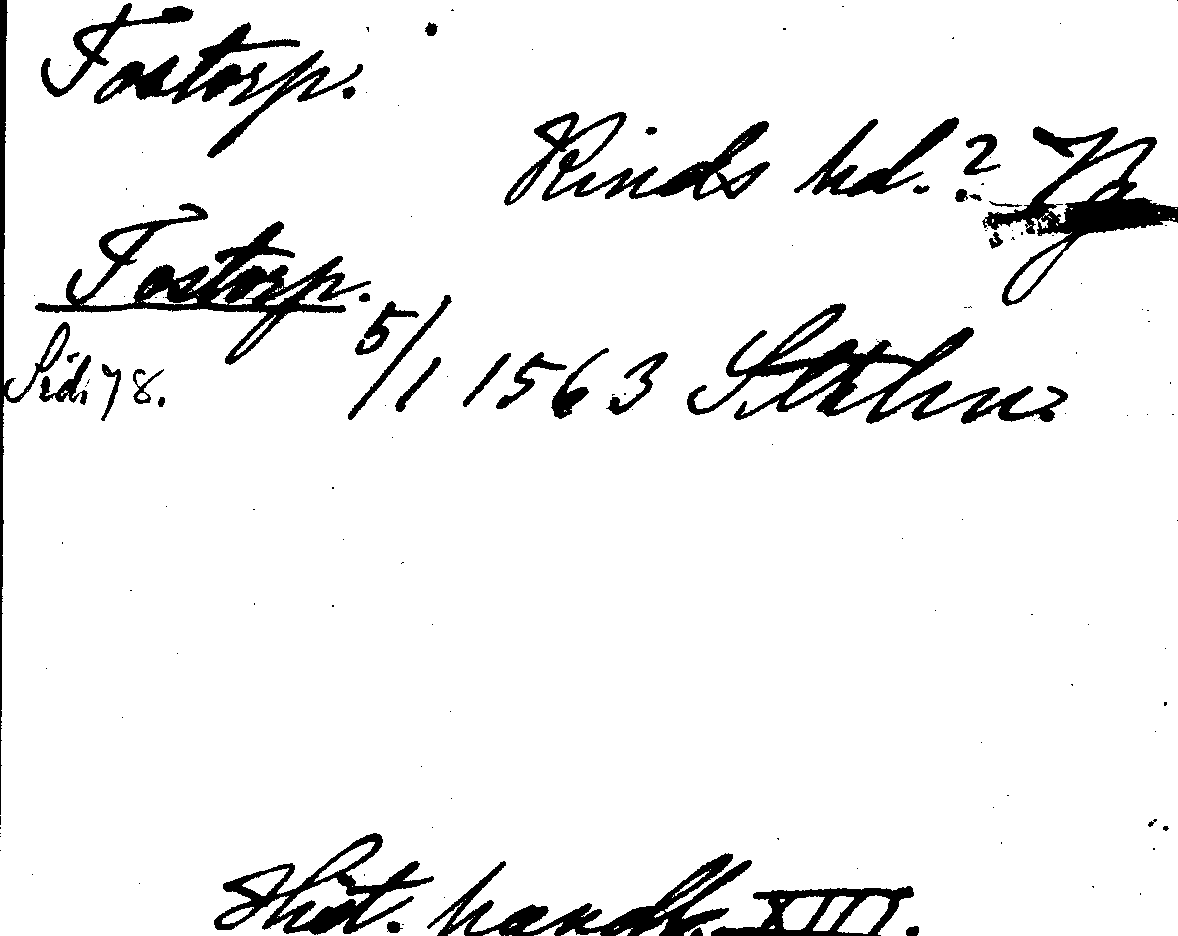 Fostorp.
Kinds hd.? Vg
Fostorp.
Sid. 78. 5/1 1563 Sthlm.
Hist. handl. XIII.